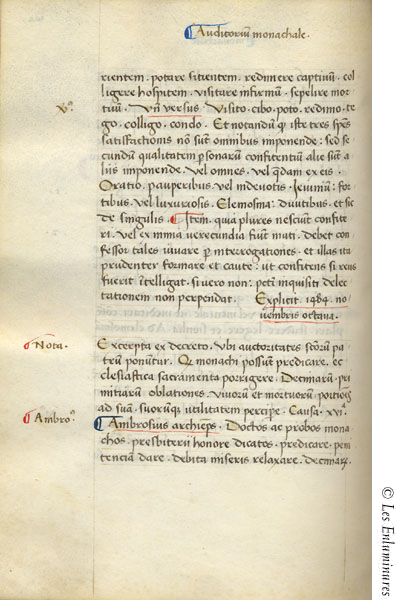 Auditoriū monachale.
rientem. potare sitientem. redimere captiuū. col
ligere hospitem. visitare infirmū. sepelire mor
tuū. Vn̄ versus. Visito. cibo. poto. redimo. te
go. colligo. condo. Et notandū ꝙ iste tres spēs
satisfactionis nō sūt omnibus imponende: sed se
cundū qualitatem ꝑsonarū confitentiū alie sūt a
liis imponende. Vel omnes. vel q̄dam ex eis.
Oratio. pauperibus. vel indeuotis. Ieiuniū: for
tibus. vel luxuriosis. Elemosina: diuitibus. et sic
de singulis. ¶ Item. quia plures nesciūt confite
ri. vel ex nimia verecundia fiūt muti. debet con
fessor tales iuuare ꝑ interrogationes. et illas ita
prudenter formare et caute: ut confitens si reus
fuerit ītelligat. si vero non: peti inquisiti delec
tationem non perpendat. Explicit 1484. no
uembris octaua.
¶ Nota.
Excerpta ex decreto. Vbi auctoritates sctōrū pa
trū ponūtur. Q monachi possūt predicare. ec
clesiastica sacramenta porrigere. Decimarū. pri
mitiarū oblationes. Viuorū et mortuorū. portiōes
ad suā. suorūq; utilitatem percipe. Causa. xvi.
¶ Ambro.
¶ Ambrosius archieps. Doctos ac probos mona
chos. presbiterii honore dicatos. predicare. peni
tenciā dare. debita miseris relaxare. decimaꝝ.
© Les Enluminures